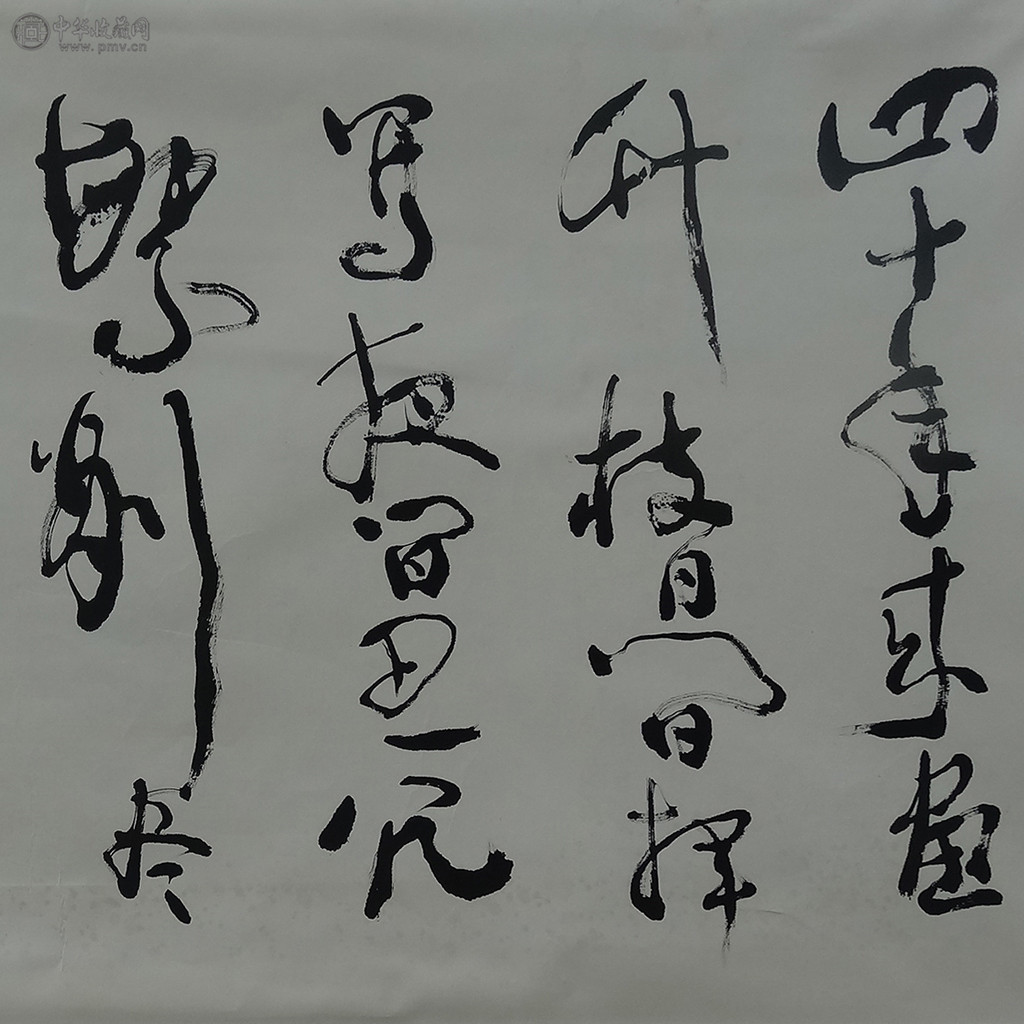 中华收藏网
www.pmv.cn
四十年来畫
竹枝日間揮
寫夜間思冗
繁削尽